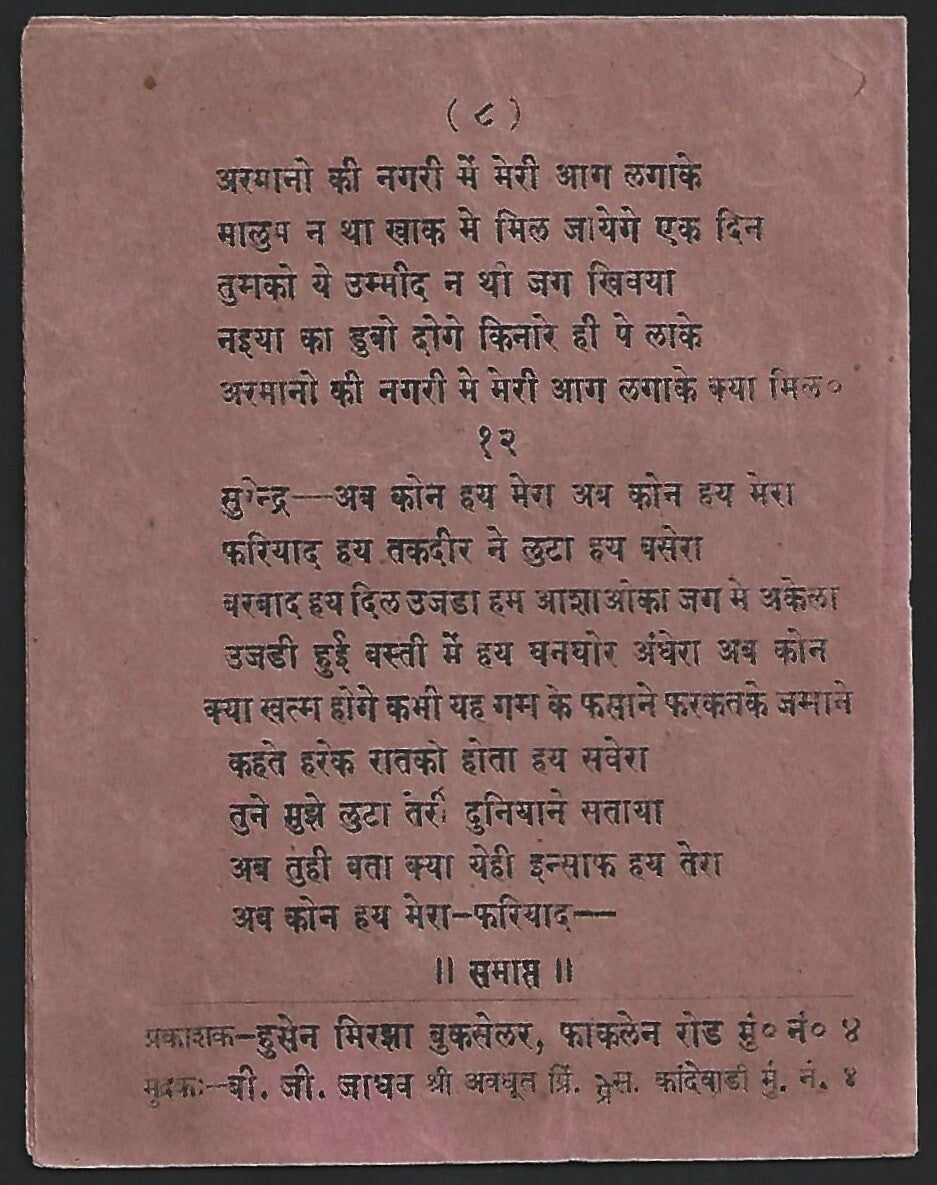 ( ८ )
अरमानो की नगरी में मेरी आग लगाके
मालुम न था खाक मे मिल जायेगे एक दिन
तुमको ये उम्मीद न थी जग खिवया
नइया का डुबो दोगे किनारे ही पे लाके
अरमानो की नगरी मे मेरी आग लगाके क्या मिल०
१२
सुरेन्द्र—अब कोन हय मेरा अब कोन हय मेरा
फरियाद हय तकदीर ने लुटा हय बसेरा
बरबाद हय दिल उजडा हम आशाओका जग मे अकेला
उजडी हुई बस्ती में हय घनघोर अंधेरा अब कोन
क्या खत्म होगे कभी यह गम के फसाने फरकतके जमाने
कहते हरेक रातको होता हय सवेरा
तुने मुझे लुटा तेरी दुनियाने सताया
अब तुही बता क्या येही इन्साफ हय तेरा
अब कोन हय मेरा—फरियाद—
॥ समाप्त ॥
प्रकाशक—हुसेन मिरझा बुकसेलर, फाकलेन रोड मुं० नं० ४
मुद्रकः—बी. जी. जाधव श्री अवधूत प्रिं. प्रेस. कांदेवाडी मुं. नं. ४